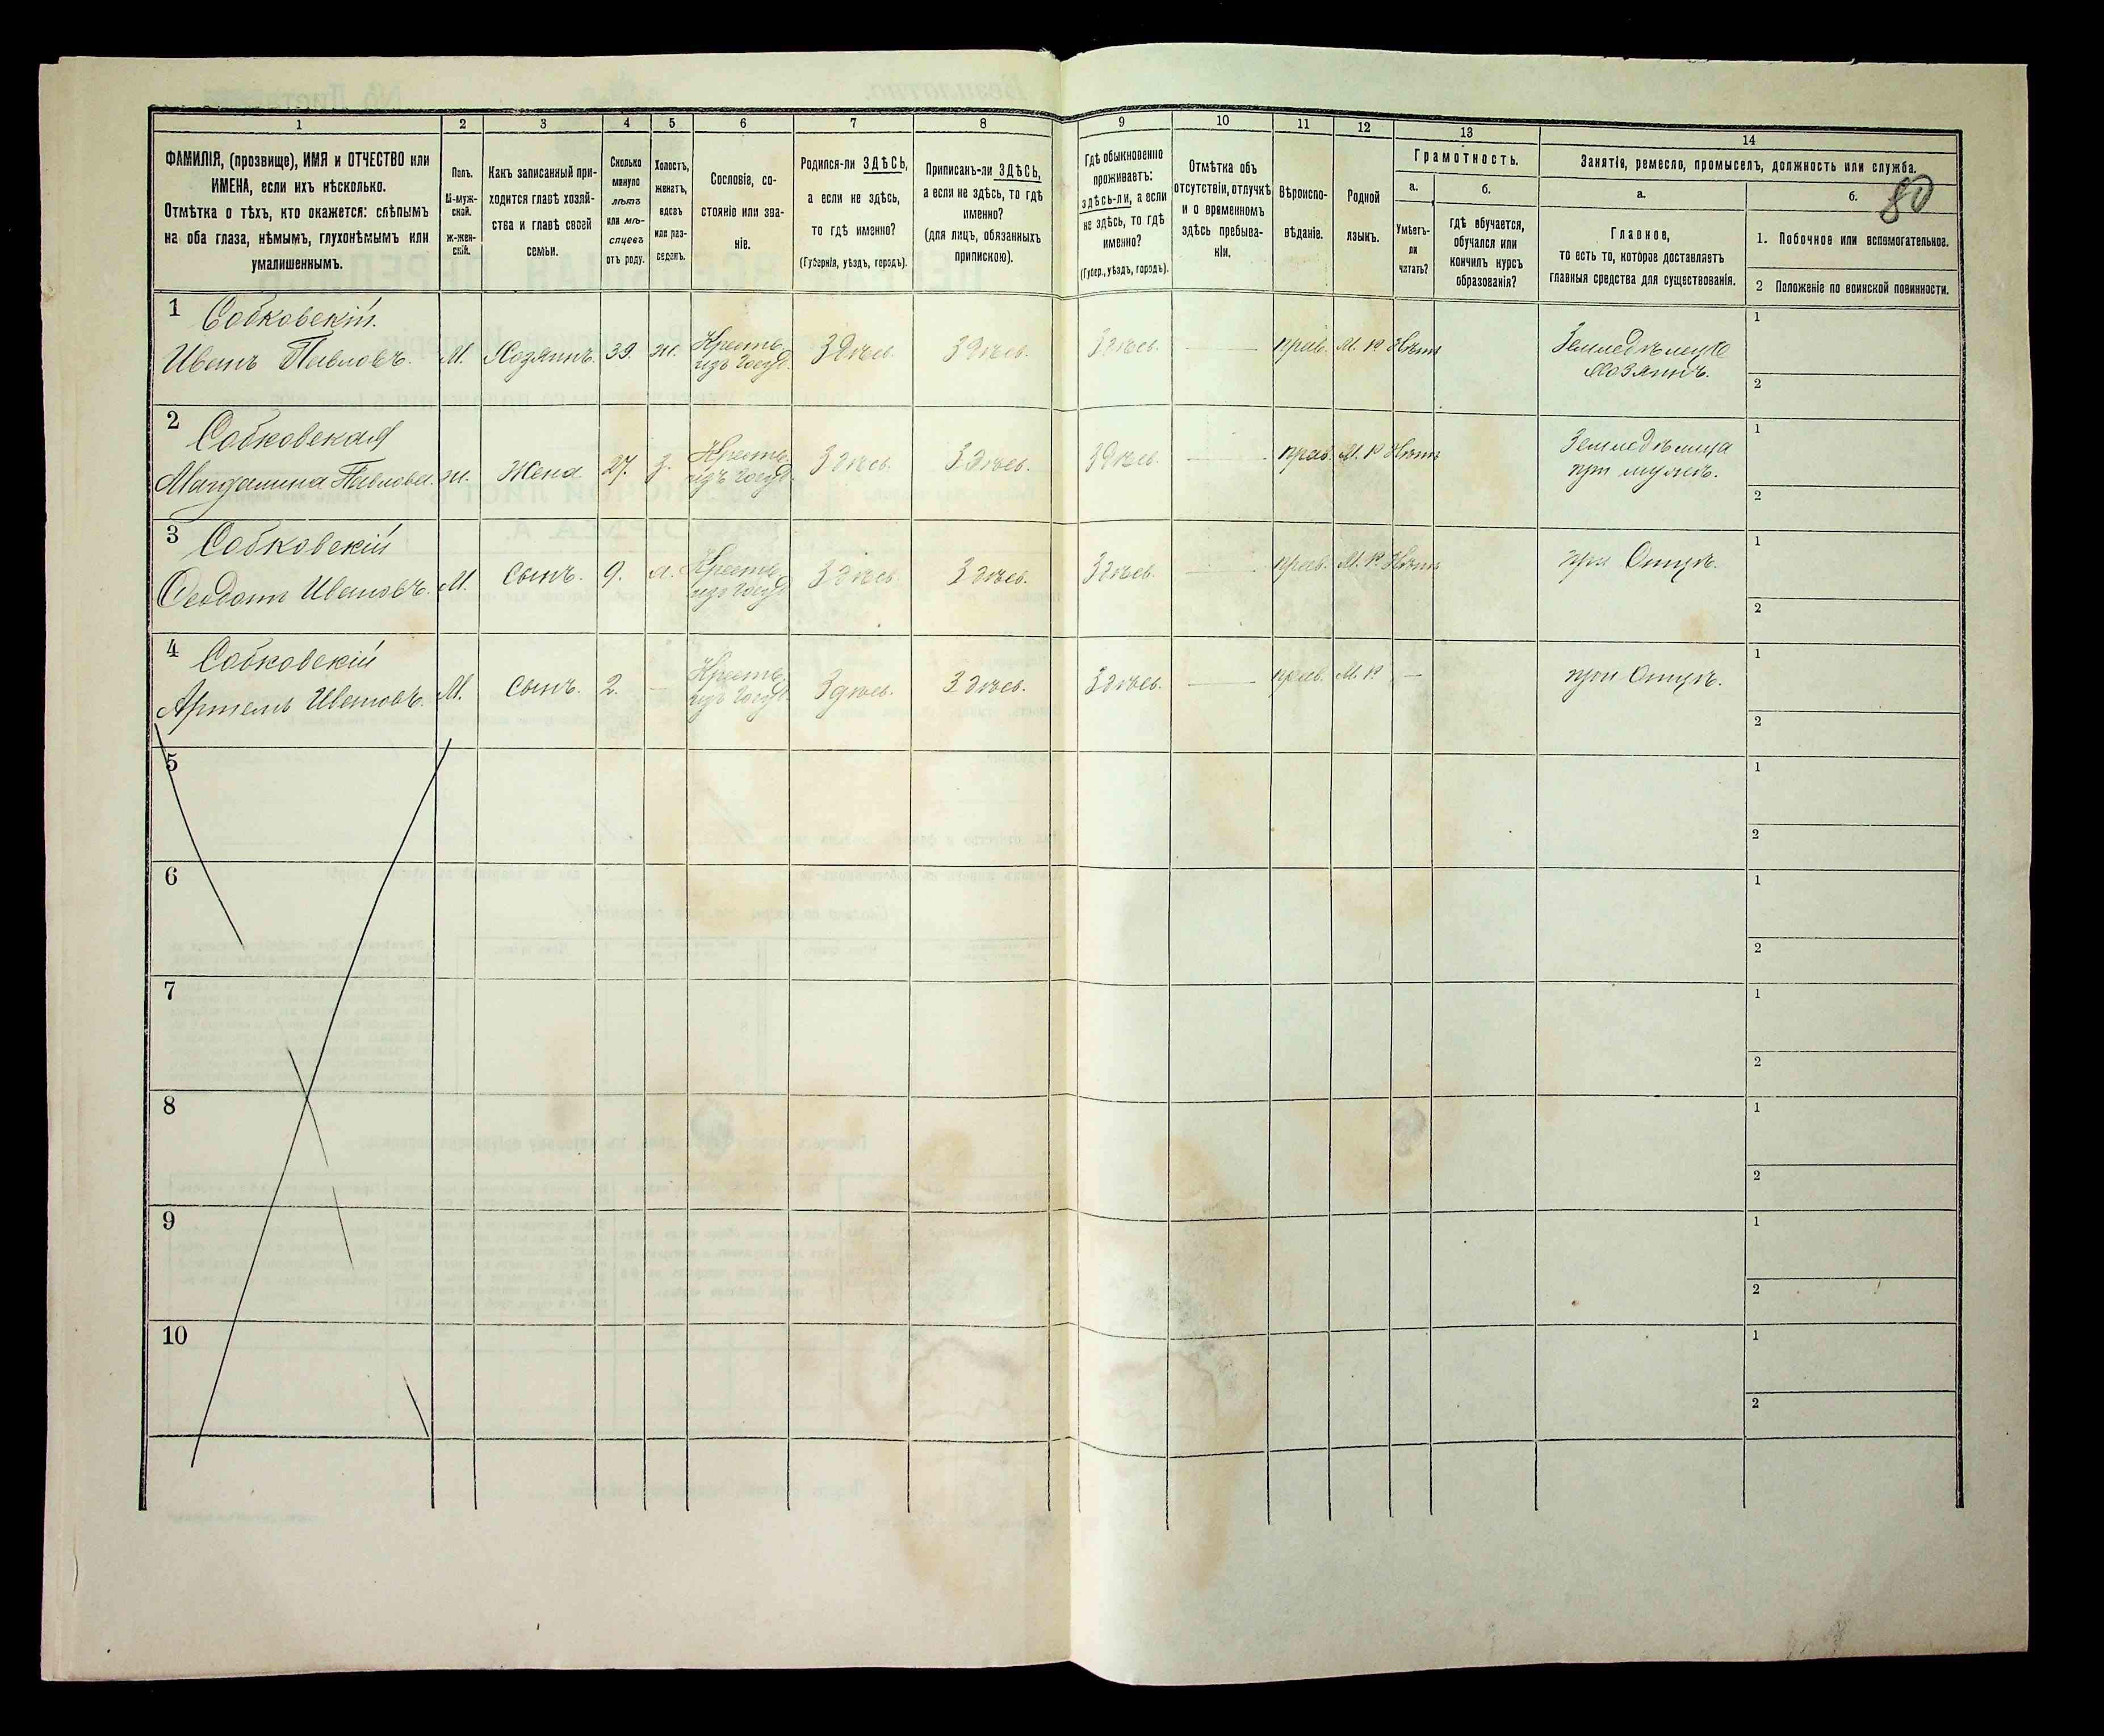 80
1 2 3 4 5 6 7 8 9 10 11 12 13 14
ФАМИЛІЯ, (прозвище), ИМЯ и ОТЧЕСТВО или
ИМЕНА, если ихъ нѣсколько.
Отмѣтка о тѣхъ, кто окажется: слѣпымъ
на оба глаза, нѣмымъ, глухонѣмымъ или
умалишеннымъ.
Полъ.
М-муж-
ской.
ж-жен-
скій.
Какъ записанный при-
ходится главѣ хозяй-
ства и главѣ своей
семьи.
Сколько
минуло
лѣтъ
или мѣ-
сяцевъ
отъ роду.
Холостъ,
женатъ,
вдовъ
или раз-
веденъ.
Сословіе, со-
стояніе или зва-
ніе.
Родился-ли ЗДѢСЬ,
а если не здѣсь,
то гдѣ именно?
(Губернія, уѣздъ, городъ).
Приписанъ-ли ЗДѢСЬ,
а если не здѣсь, то гдѣ
именно?
(для лицъ, обязанныхъ
припискою).
Гдѣ обыкновенно
проживаетъ:
здѣсь-ли, а если
не здѣсь, то гдѣ
именно?
(Губер., уѣздъ, городъ).
Отмѣтка объ
отсутствіи, отлучкѣ
и о временномъ
здѣсь пребыва-
ніи.
Вѣроиспо-
вѣданіе.
Родной
языкъ.
Грамотность.
а.
Умѣетъ-
ли
читать?
б.
гдѣ обучается,
обучался или
кончилъ курсъ
образованія?
Занятіе, ремесло, промыселъ, должность или служба.
а.
Главное,
то есть то, которое доставляетъ
главныя средства для существованія.
б.
1. Побочное или вспомогательное.
2 Положеніе по воинской повинности.
1 Собковскій.
Иванъ Павловъ. М. Хозяинъ. 39. ж. Крестъ. изъ госуд. Здѣсь. Здѣсь. Здѣсь. — прав. М. Р. Нѣтъ Земледѣлецъ
хозяинъ.
1
2
2 Собковская
Магдалина Павлова. ж. Жена 27. з. Крестъ. изъ госуд. Здѣсь. Здѣсь. Здѣсь. — прав. М. Р. Нѣтъ Земледѣлица
при мужѣ.
1
2
3 Собковскій
Феодотъ Ивановъ. М. сынъ. 9. х. Крестъ. изъ госуд. Здѣсь. Здѣсь. Здѣсь. — прав. М. Р. Нѣтъ при Отцѣ.
1
2
4 Собковскій
Артемъ Ивановъ. М. сынъ. 2. — Крестъ. изъ госуд. Здѣсь. Здѣсь. Здѣсь. — прав. М. Р. — при Отцѣ.
1
2
5
1
2
6
1
2
7
1
2
8
1
2
9
1
2
10
1
2